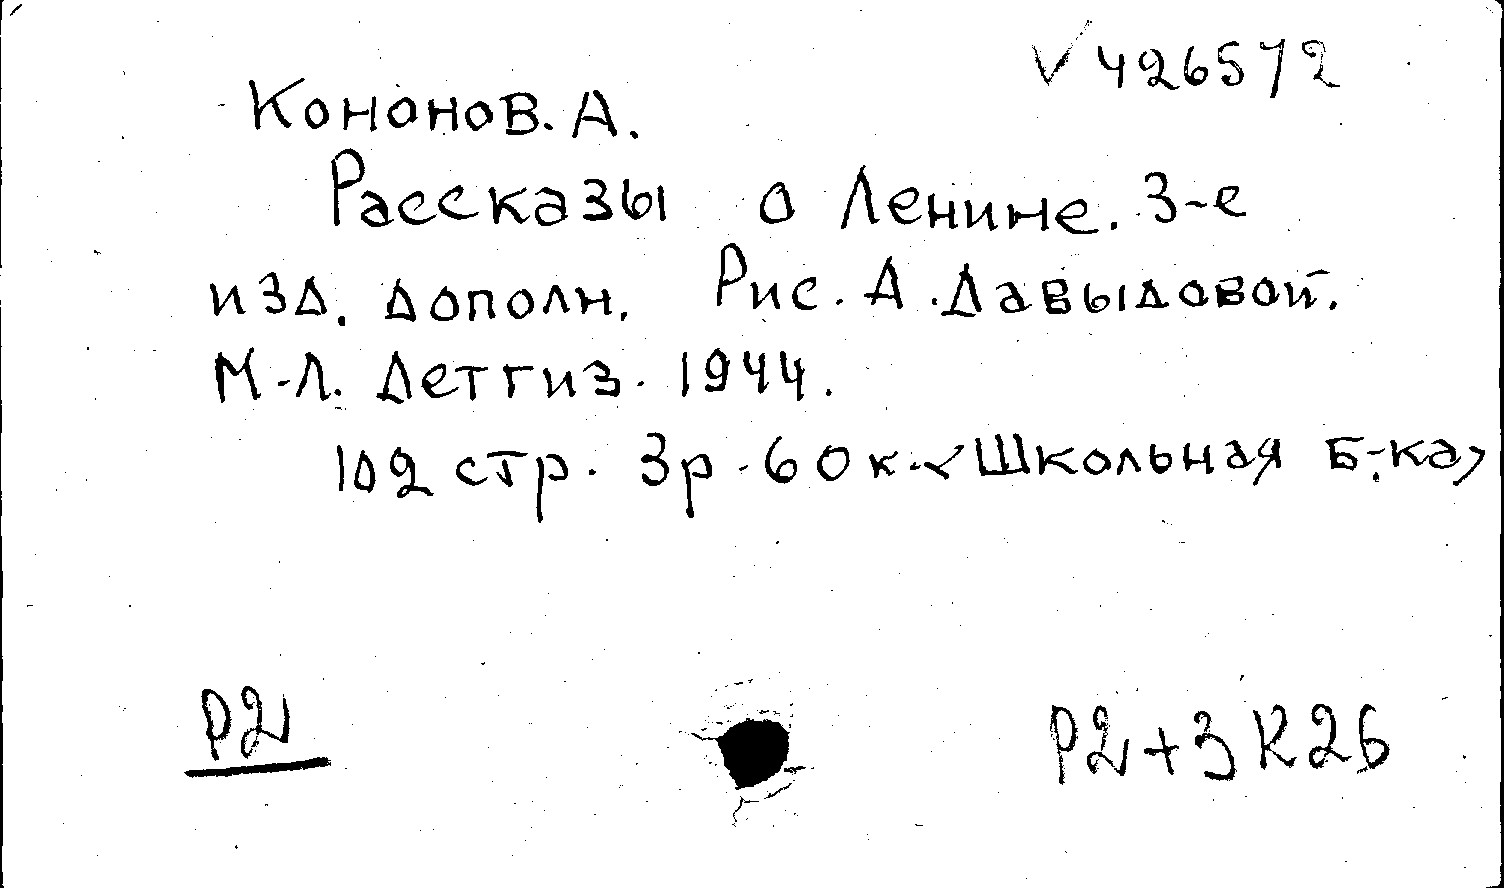 √ 426572
Кононов. А.
Рассказы о Ленине. 3-е
изд. дополн. Рис. А. Давыдовой.
М-Л. Детгиз. 1944.
102 стр. 3р. 60к. <Школьная Б-ка>
Р2 Р2+3К26